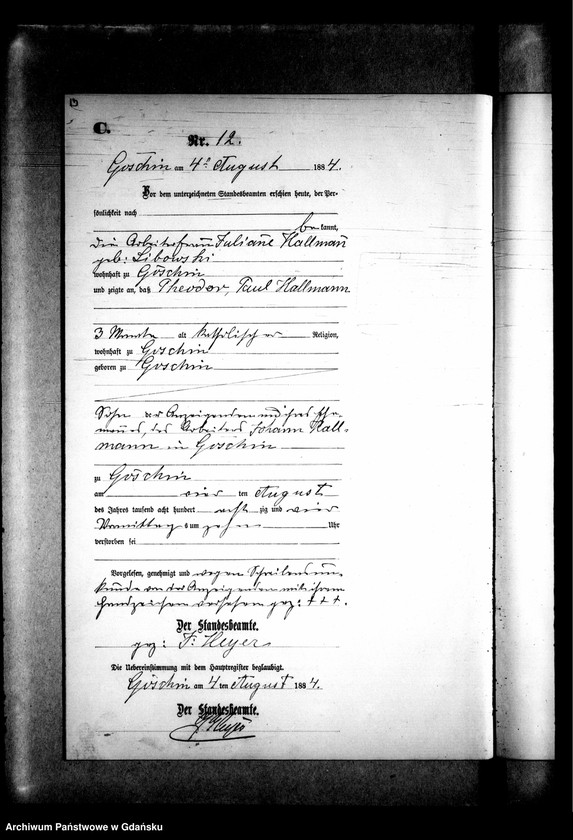 C.
Nr. 12.
Goschin am 4ᵗ August 1884.
Vor dem unterzeichneten Standesbeamten erschien heute, der Per-
sönlichkeit nach
bekannt,
die Arbeiterfrau Juliane Hallmann
geb: Libowski
wohnhaft zu Goschin
und zeigte an, daß Theodor, Paul Hallmann
3 Monate alt katholischer Religion,
wohnhaft zu Goschin
geboren zu Goschin
Sohn der Anzeigenden und ihres Ehe-
mannes, des Arbeiters Johann Hall-
mann in Goschin
zu Goschin
am vier ten August
des Jahres tausend acht hundert acht zig und vier
Vormittags um zehn Uhr
verstorben sei
Vorgelesen, genehmigt und wegen Schreibensun-
kunde von der Anzeigenden mit ihrem
Handzeichen versehen gez: + + +.
Der Standesbeamte.
gez: F. Heyer
Die Uebereinstimmung mit dem Hauptregister beglaubigt.
Goschin am 4 ten August 1884.
Der Standesbeamte.
Heyer
Archiwum Państwowe w Gdańsku